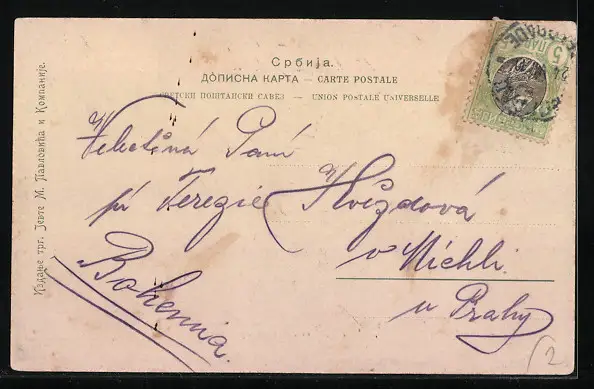 Србија.
ДОПИСНА КАРТА — CARTE POSTALE
СВЕТСКИ ПОШТАНСКИ САВЕЗ — UNION POSTALE UNIVERSELLE
Velectěná Paní
pí Terezie Hvízdová
v Michli
u Prahy
Bohemia.
Издање трг. Јевте М. Павловића и Компаније.
5 ПАРА
2